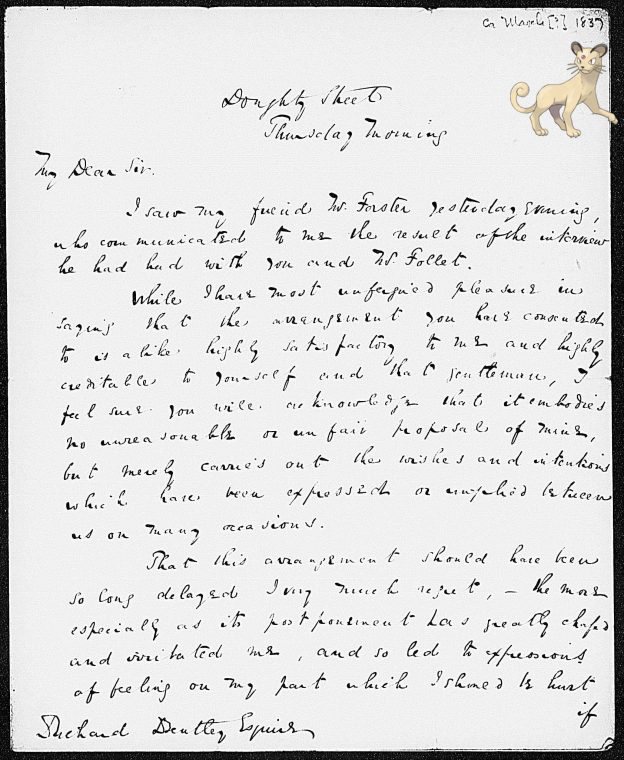 ca March [?] 1837
Doughty Street
Thursday Morning
My Dear Sir.
I saw my friend Mr. Forster yesterday Evening,
who communicated to me the result of the interview
he had had with you and Mr. Follet.
While I have most unfeigned pleasure in
saying that the arrangement you have consented
to is alike highly satisfactory to me and highly
creditable to yourself and that gentleman, I
feel sure you will acknowledge that it embodies
no unreasonable or unfair proposal of mine,
but merely carries out the wishes and intentions
which have been expressed or implied between
us on many occasions.
That this arrangement should have been
so long delayed I very much regret, – the more
especially as its postponement has greatly chafed
and irritated me, and so led to expressions
of feeling on my part which I should be hurt
if
Richard Bentley Esquire